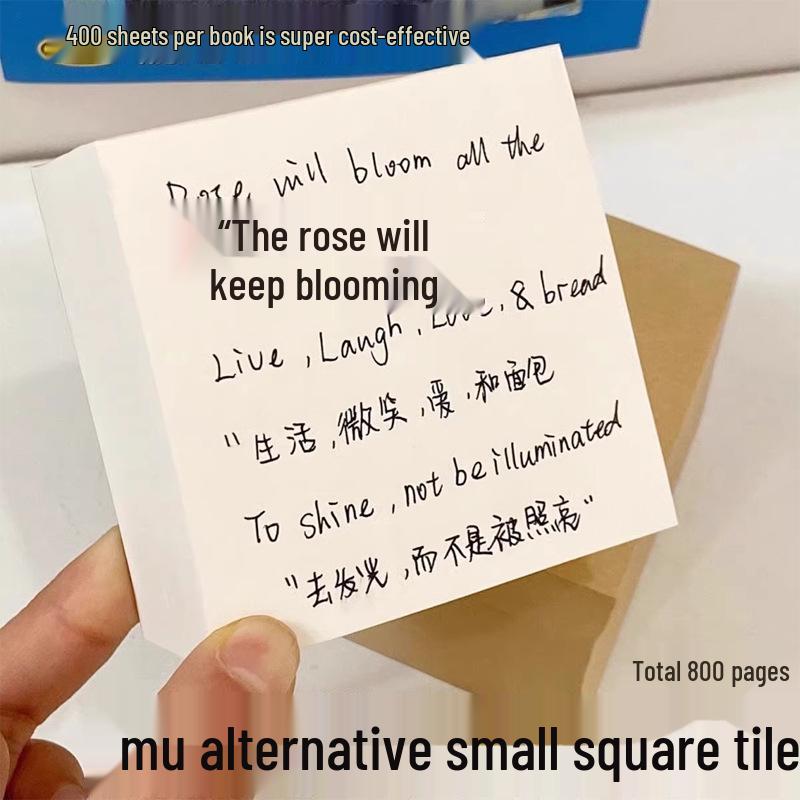 400 sheets per book is super cost-effective
Rose will bloom all the
“The rose will
keep blooming
Live , Laugh , Love , & bread
“生活,微笑,爱,和面包
To shine , not be illuminated
“去发光,而不是被照亮”
Total 800 pages
mu alternative small square tile